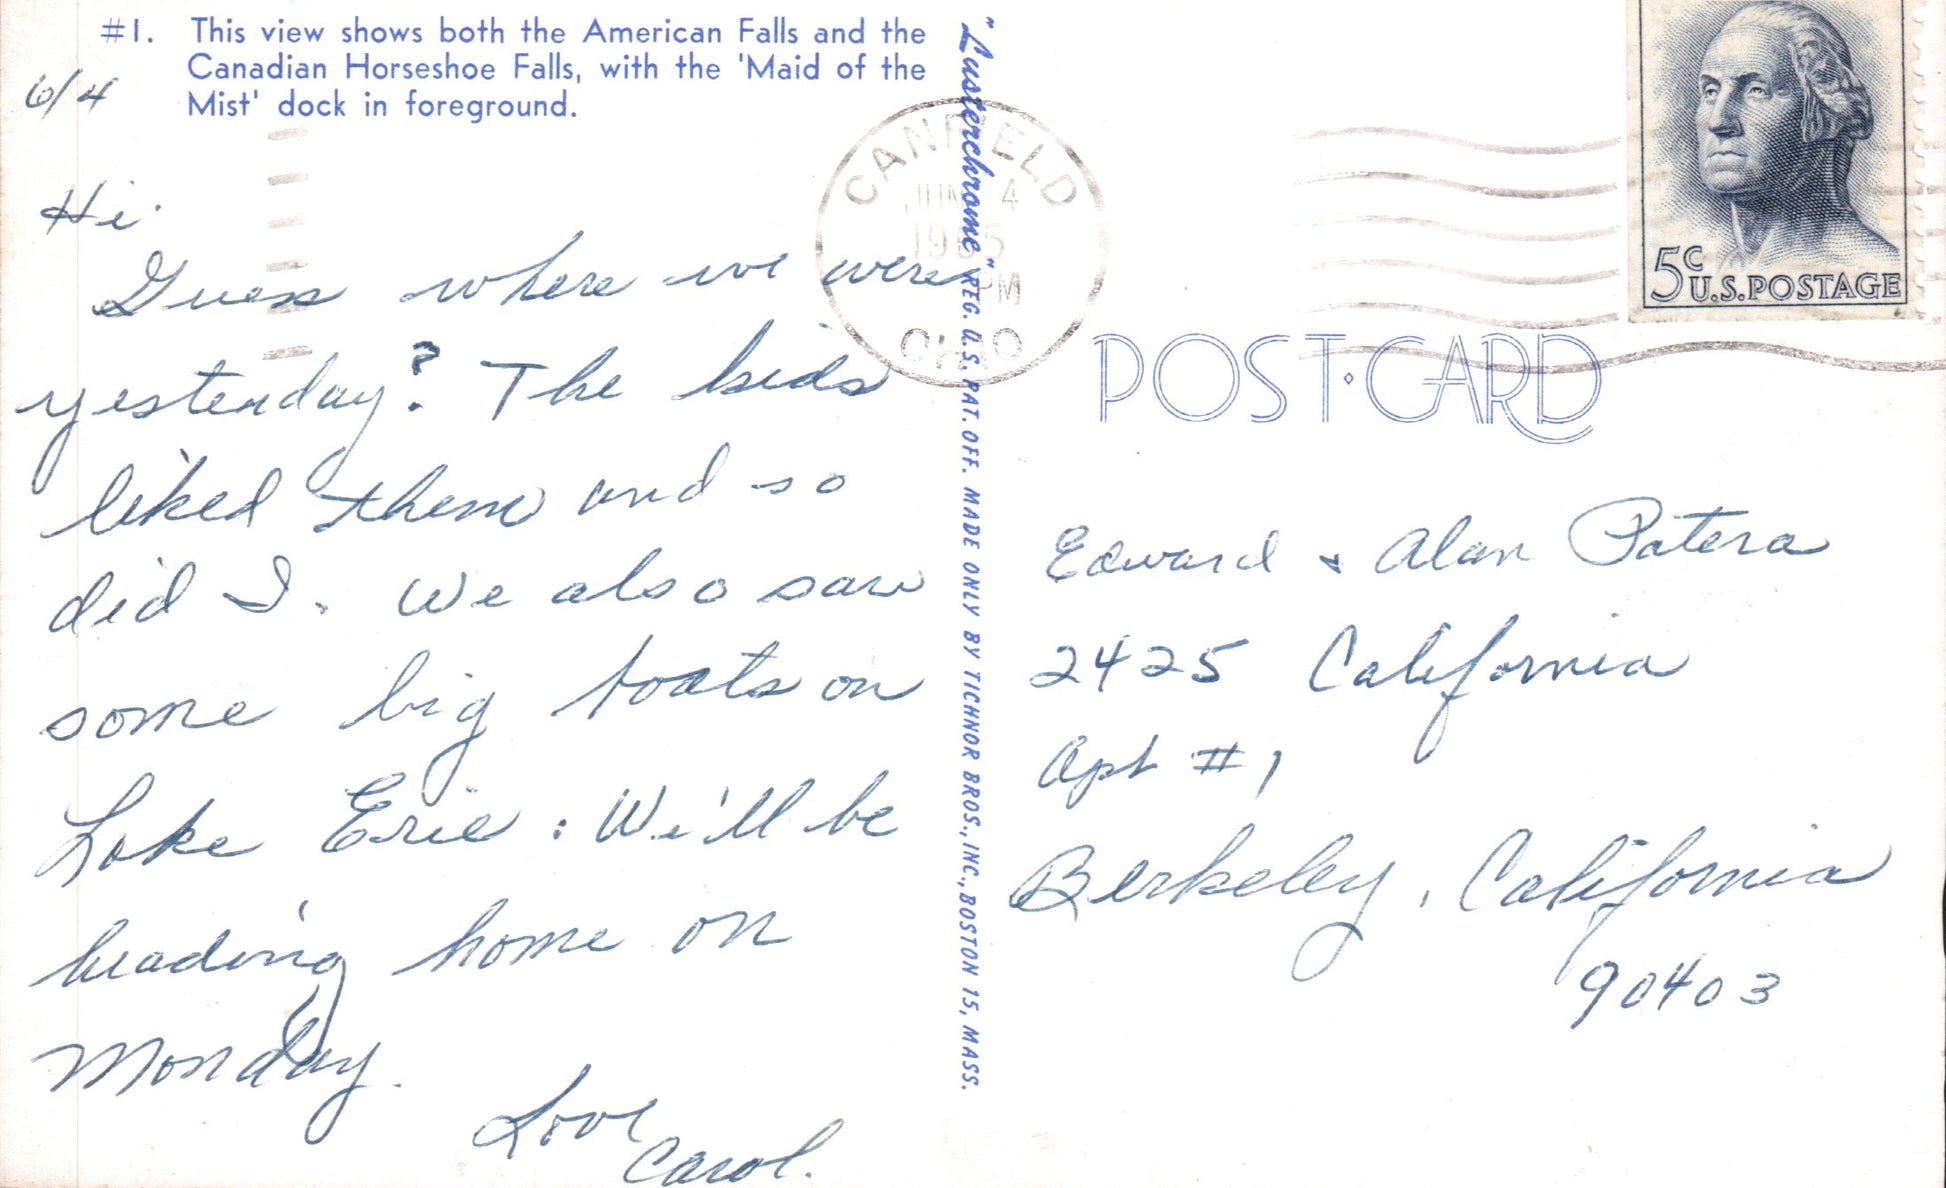 #1. This view shows both the American Falls and the
Canadian Horseshoe Falls, with the 'Maid of the
Mist' dock in foreground.
6/4
Hi.
Guess where we were
yesterday? The kids
liked them and so
did I. We also saw
some big boats on
Lake Erie. We'll be
heading home on
Monday.
Love
Carol.
"Lusterchrome" REG. U.S. PAT. OFF. MADE ONLY BY TICHNOR BROS., INC., BOSTON 15, MASS.
CANFIELD
JUN 4
1965
PM
OHIO
5c U.S. POSTAGE
POST·CARD
Edward + Alan Patera
2425 California
Apt #1
Berkeley, California
90403